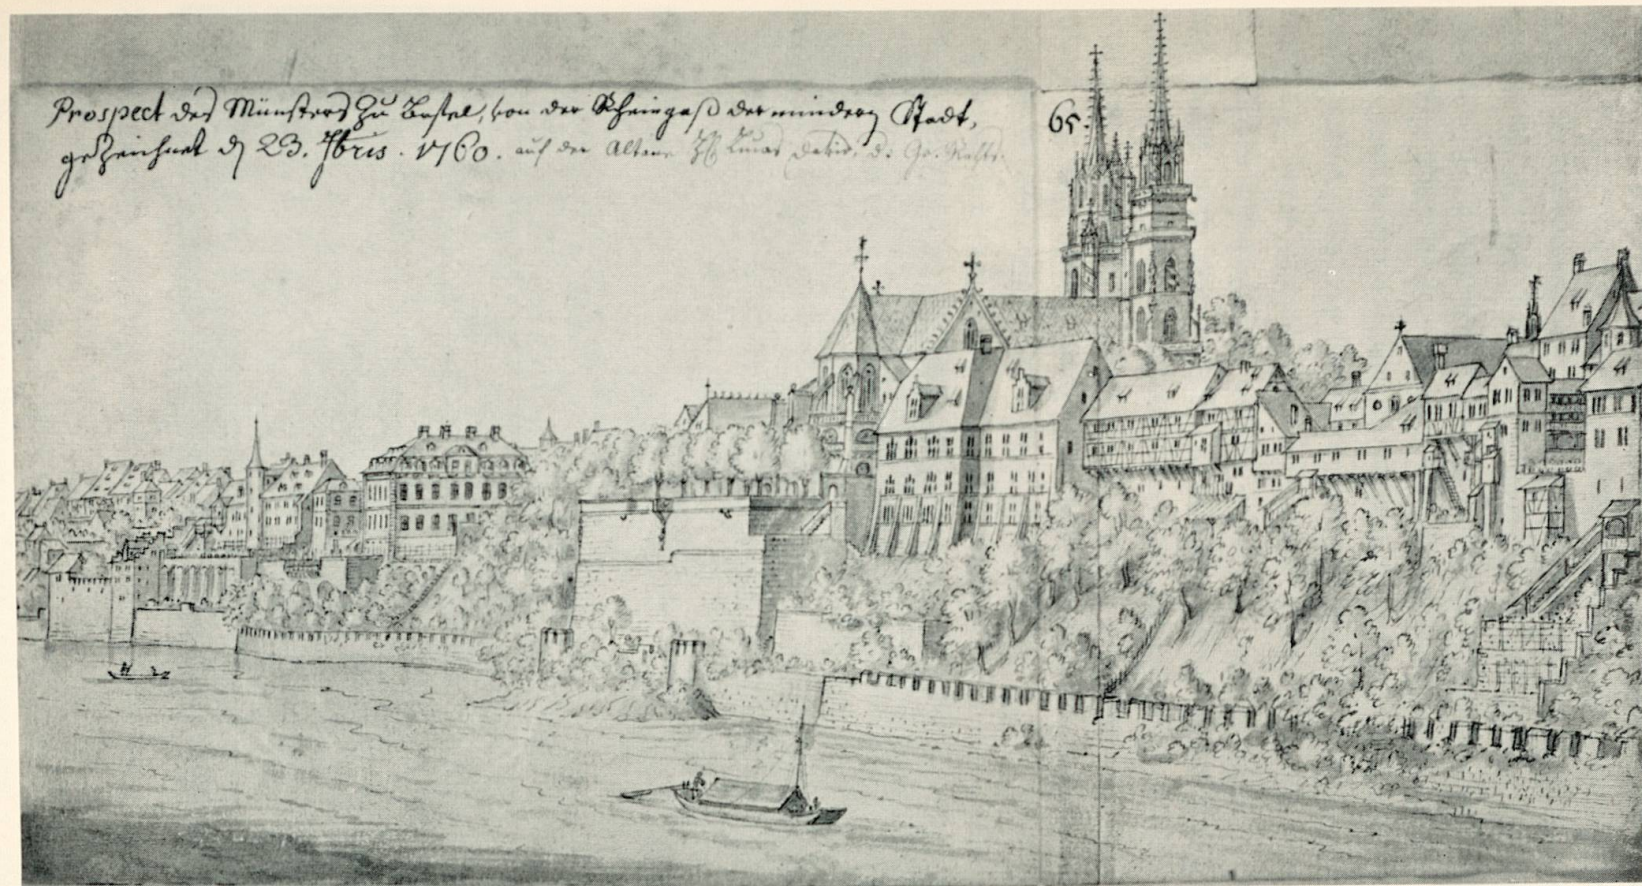 Prospect des Münsters zu Bassel, von der Rheingaß der mindern Stadt,
gezeichnet d. 23. 7bris. 1760. auf der Altane Hh Lucas
65.